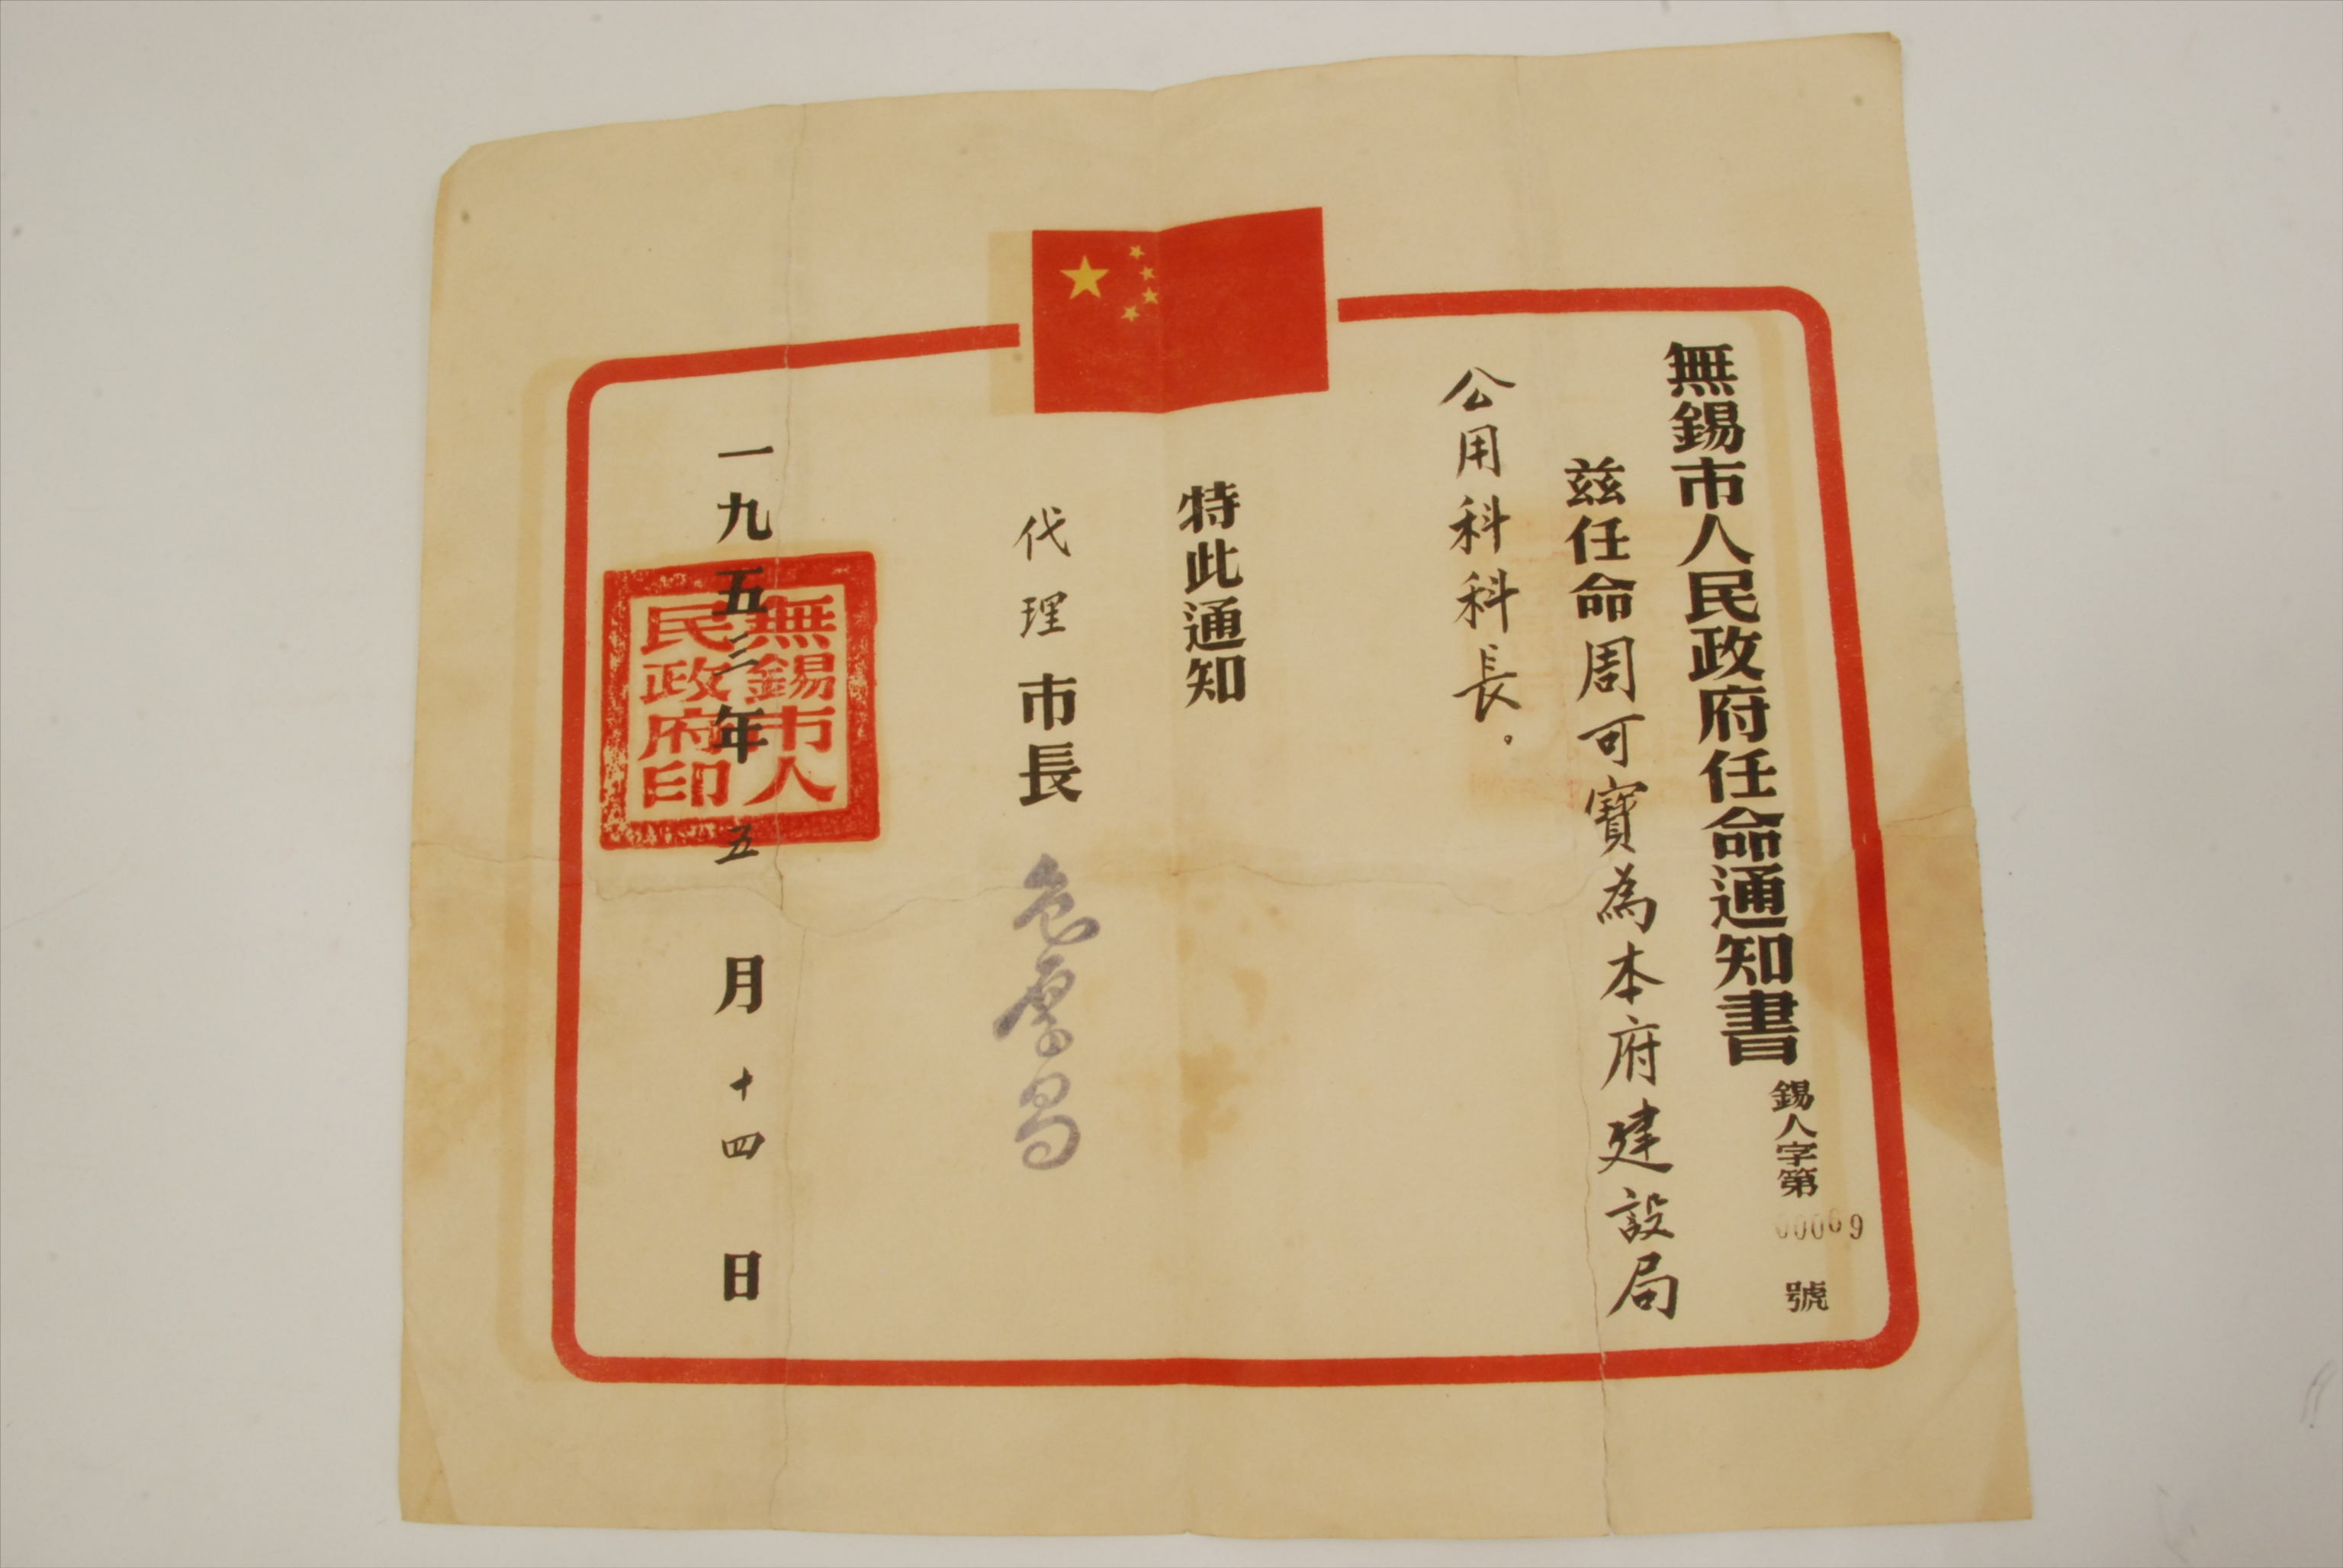 無錫市人民政府任命通知書
錫人字第00069號
兹任命周可寶為本府建設局
公用科科長。
特此通知
代理市長 包厚昌
一九五三年五月十四日
無錫市人
民政府印